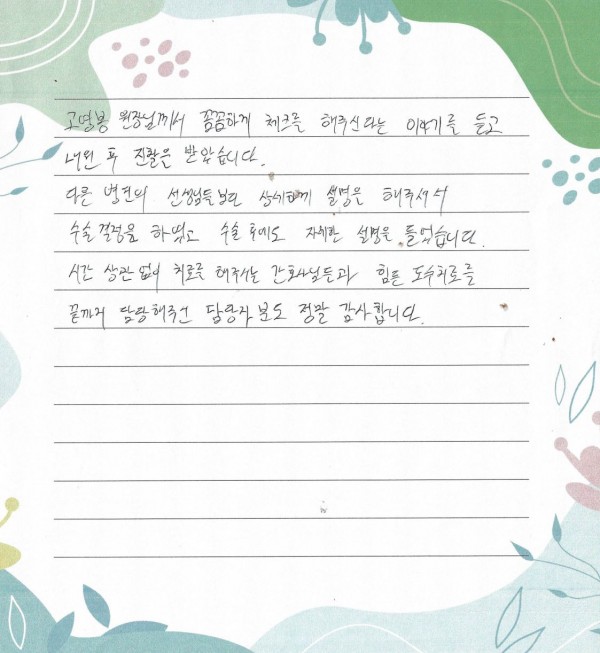 고영봉 원장님께서 꼼꼼하게 체크를 해주신다는 이야기를 듣고
내원 후 진찰을 받았습니다.
다른 병원의 선생님들보다 상세하게 설명을 해주셔서
수술결정을 하였고 수술 후에도 자세한 설명을 들었습니다.
시간 상관 없이 치료를 해주시는 간호사님들과 힘든 도수치료를
끝까지 담당해주신 담당자 분도 정말 감사합니다.